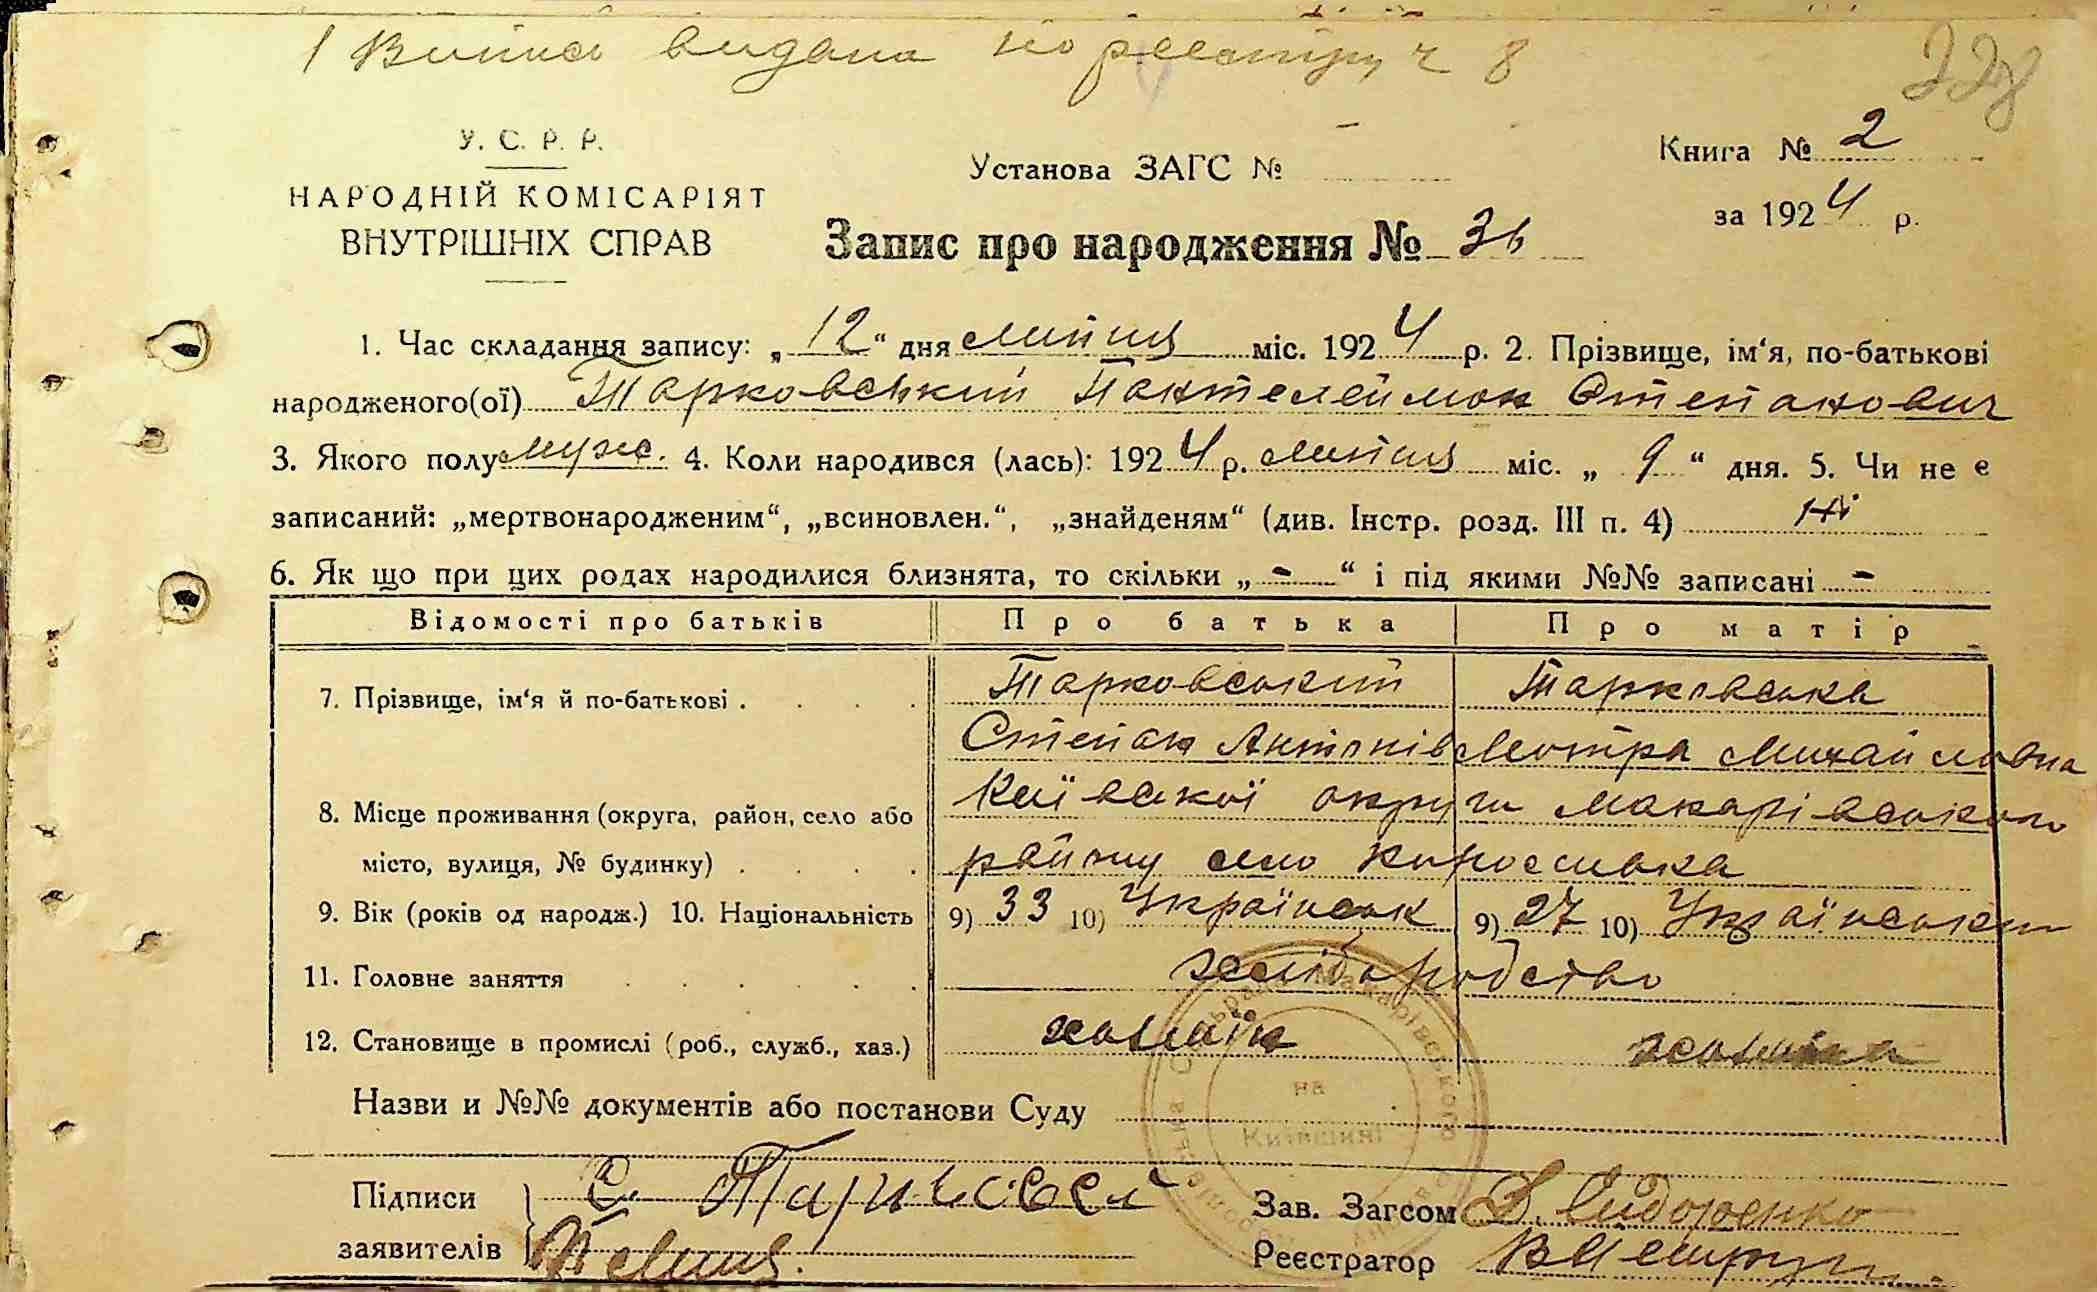 1 Випись видана по реєстру ч 8
228
У. С. Р. Р.
НАРОДНІЙ КОМІСАРІЯТ
ВНУТРІШНІХ СПРАВ
Установа ЗАГС №
Книга № 2
за 1924 р.
Запис про народження № 36
1. Час складання запису: „12“ дня липця міс. 1924 р. 2. Прізвище, ім‘я, по-батькові
народженого(ої) Тарковський Пантелеймон Степанович
3. Якого полу муж. 4. Коли народився (лась): 1924 р. липця міс. „ 9 “ дня. 5. Чи не є
записаний: „мертвонародженим“, „всиновлен.“, „знайденям“ (див. Інстр. розд. III п. 4) Ні
6. Як що при цих родах народилися близнята, то скільки „ - “ і під якими №№ записані -
Відомості про батьків Про батька Про матір
7. Прізвище, ім‘я й по-батькові . . . . Тарковський Тарковська
Степан Антонів Мотря Михайловна
8. Місце проживання (округа, район, село або Київської округи Макарівського
місто, вулиця, № будинку) . . . . району село
9. Вік (років од народж.) 10. Національність 9) 33 10) Українськ 9) 27 10) Українськ
11. Головне заняття . . . . . . хліборобство
12. Становище в промислі (роб., служб., хаз.) хазяїн хазяйка
Назви и №№ документів або постанови Суду
Макарівського
на
Київщині
Підписи С.
заявителів
Зав. Загсом Д. Сидоренко
Реєстратор